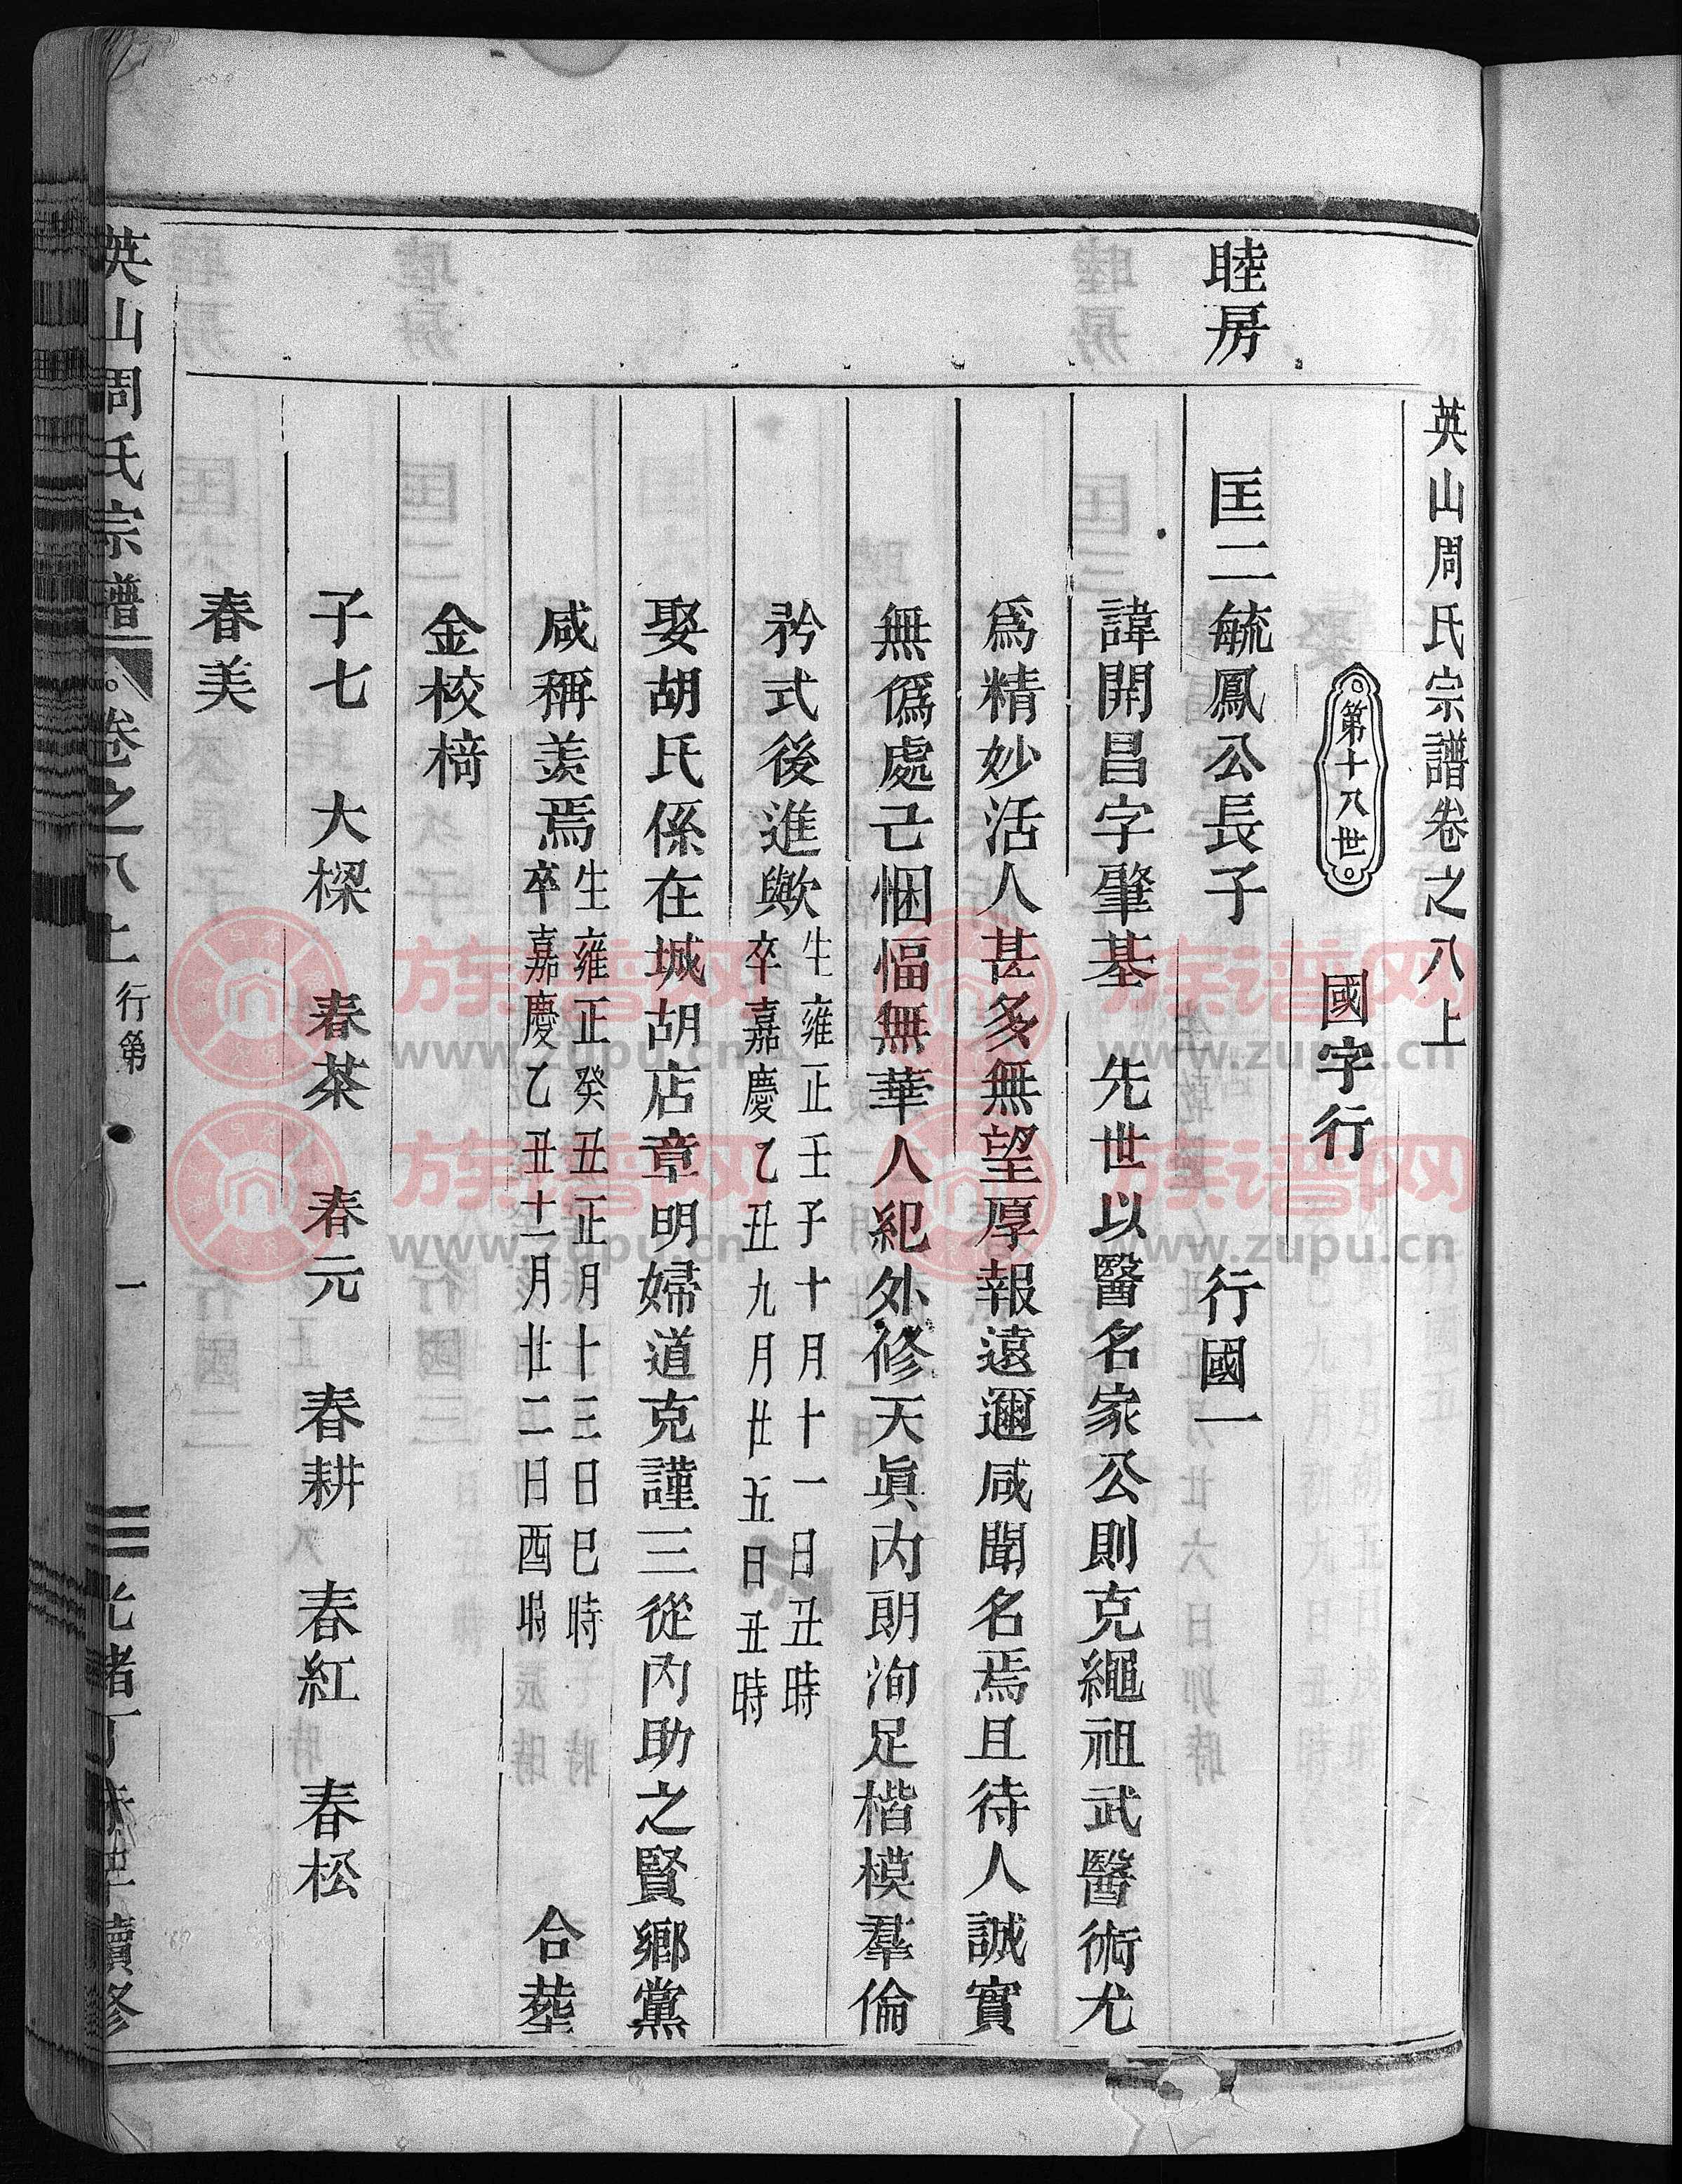 英山周氏宗譜卷之八上
第十八世 國字行
睦房
匡二毓鳳公長子 行國一
諱開昌字肇基 先世以醫名家公則克繩祖武醫術尤
爲精妙活人甚多無望厚報遠邇咸聞名焉且待人誠實
無僞處己悃愊無華人犯外修天眞内朗洵足楷模羣倫
矜式後進歟生雍正壬子十月十一日丑時
卒嘉慶乙丑九月廿五日丑時
娶胡氏係在城胡店章明婦道克謹三從内助之賢鄉黨
咸稱羡焉生雍正癸丑正月十三日巳時
卒嘉慶乙丑十二月廿二日酉時 合塟
金校椅
子七 大樑 春茶 春元 春耕 春紅 春松
春美
英山周氏宗譜 卷之八上 行第 一 光緒丁未年續修
族谱网
www.zupu.cn
族谱网
www.zupu.cn
族谱网
www.zupu.cn
族谱网
www.zupu.cn